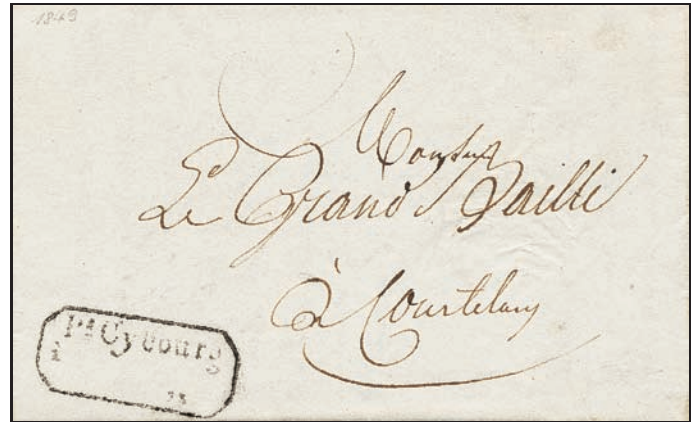 1849
Monsieur
Le Grand Bailli
à Courtelary
Cybourg